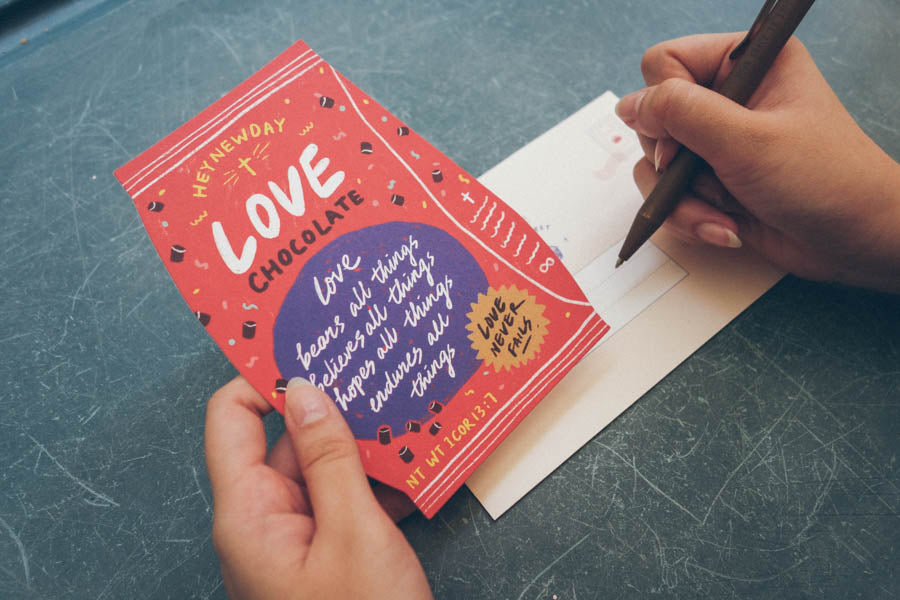 HEYNEWDAY
LOVE
CHOCOLATE
love
bears all things
believes all things
hopes all things
endures all
things
LOVE
NEVER
FAILS
NT WT 1COR 13:7